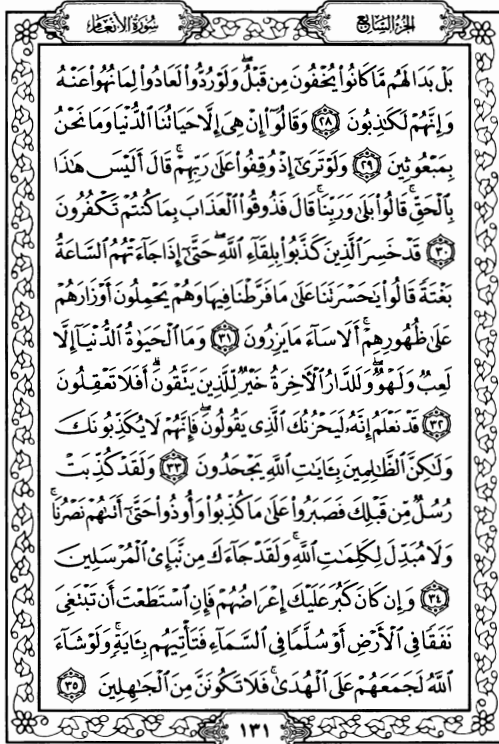 الجزء السابع
سورة الأنعام
بَلْ بَدَا لَهُم مَّا كَانُوا۟ يُخْفُونَ مِن قَبْلُ ۖ وَلَوْ رُدُّوا۟ لَعَادُوا۟ لِمَا نُهُوا۟ عَنْهُ
وَإِنَّهُمْ لَكَـٰذِبُونَ ﴿٢٨﴾ وَقَالُوٓا۟ إِنْ هِىَ إِلَّا حَيَاتُنَا ٱلدُّنْيَا وَمَا نَحْنُ
بِمَبْعُوثِينَ ﴿٢٩﴾ وَلَوْ تَرَىٰٓ إِذْ وُقِفُوا۟ عَلَىٰ رَبِّهِمْ ۚ قَالَ أَلَيْسَ هَـٰذَا
بِٱلْحَقِّ ۚ قَالُوا۟ بَلَىٰ وَرَبِّنَا ۚ قَالَ فَذُوقُوا۟ ٱلْعَذَابَ بِمَا كُنتُمْ تَكْفُرُونَ
﴿٣٠﴾ قَدْ خَسِرَ ٱلَّذِينَ كَذَّبُوا۟ بِلِقَآءِ ٱللَّهِ ۖ حَتَّىٰٓ إِذَا جَآءَتْهُمُ ٱلسَّاعَةُ
بَغْتَةً قَالُوا۟ يَـٰحَسْرَتَنَا عَلَىٰ مَا فَرَّطْنَا فِيهَا وَهُمْ يَحْمِلُونَ أَوْزَارَهُمْ
عَلَىٰ ظُهُورِهِمْ ۚ أَلَا سَآءَ مَا يَزِرُونَ ﴿٣١﴾ وَمَا ٱلْحَيَوٰةُ ٱلدُّنْيَآ إِلَّا
لَعِبٌ وَلَهْوٌ ۖ وَلَلدَّارُ ٱلْـَٔاخِرَةُ خَيْرٌ لِّلَّذِينَ يَتَّقُونَ ۗ أَفَلَا تَعْقِلُونَ
﴿٣٢﴾ قَدْ نَعْلَمُ إِنَّهُۥ لَيَحْزُنُكَ ٱلَّذِى يَقُولُونَ ۖ فَإِنَّهُمْ لَا يُكَذِّبُونَكَ
وَلَـٰكِنَّ ٱلظَّـٰلِمِينَ بِـَٔايَـٰتِ ٱللَّهِ يَجْحَدُونَ ﴿٣٣﴾ وَلَقَدْ كُذِّبَتْ
رُسُلٌ مِّن قَبْلِكَ فَصَبَرُوا۟ عَلَىٰ مَا كُذِّبُوا۟ وَأُوذُوا۟ حَتَّىٰٓ أَتَىٰهُمْ نَصْرُنَا ۚ
وَلَا مُبَدِّلَ لِكَلِمَـٰتِ ٱللَّهِ ۚ وَلَقَدْ جَآءَكَ مِن نَّبَإِى۟ ٱلْمُرْسَلِينَ
﴿٣٤﴾ وَإِن كَانَ كَبُرَ عَلَيْكَ إِعْرَاضُهُمْ فَإِنِ ٱسْتَطَعْتَ أَن تَبْتَغِىَ
نَفَقًا فِى ٱلْأَرْضِ أَوْ سُلَّمًا فِى ٱلسَّمَآءِ فَتَأْتِيَهُم بِـَٔايَةٍ ۚ وَلَوْ شَآءَ
ٱللَّهُ لَجَمَعَهُمْ عَلَى ٱلْهُدَىٰ ۚ فَلَا تَكُونَنَّ مِنَ ٱلْجَـٰهِلِينَ ﴿٣٥﴾
١٣١